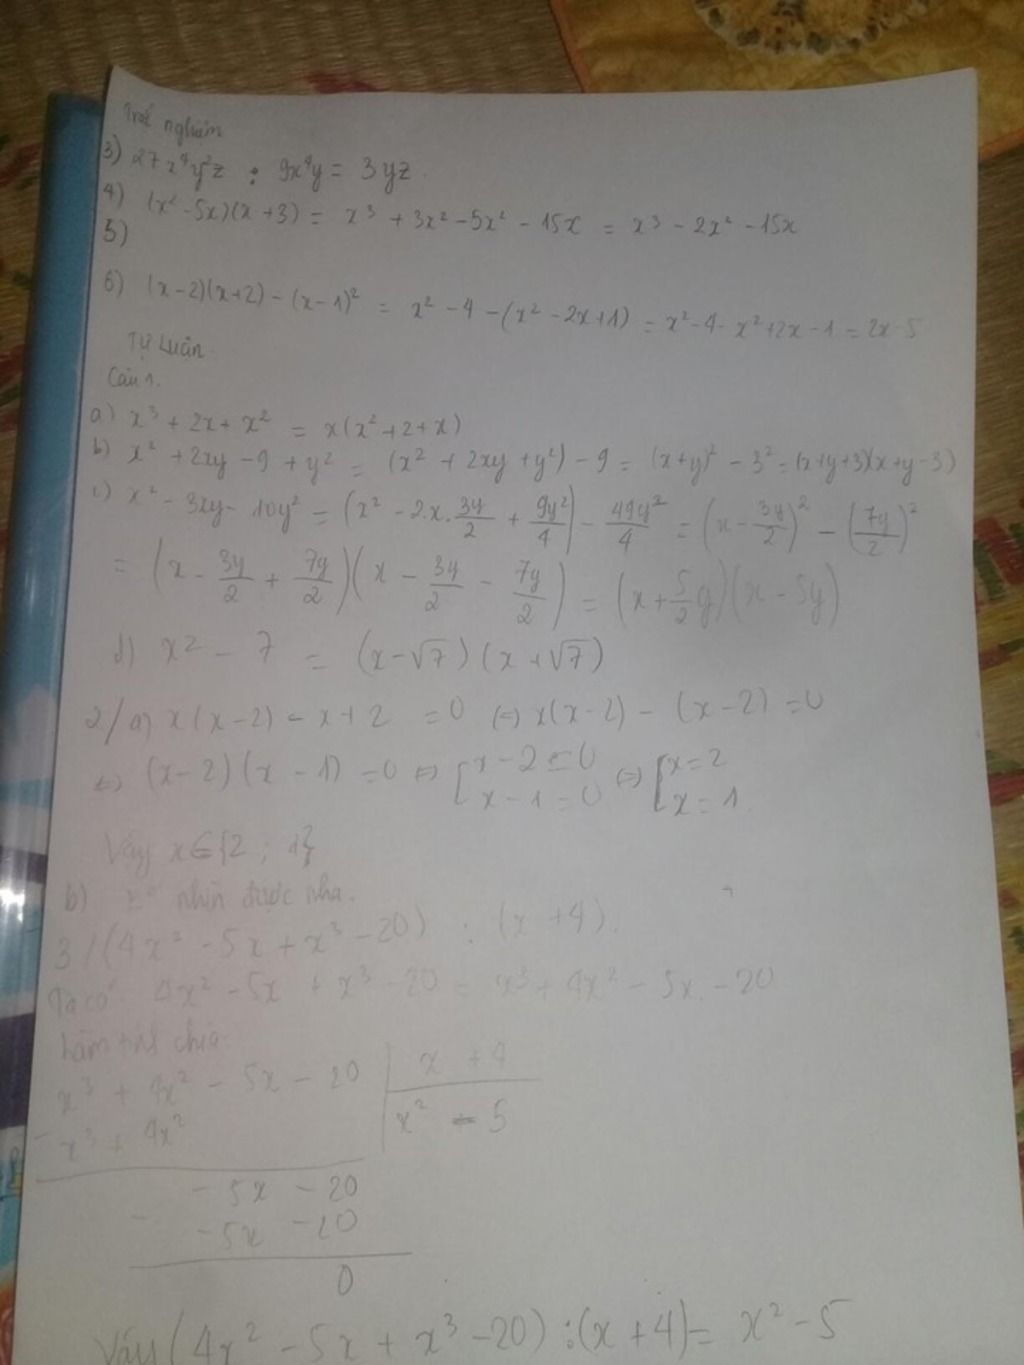 Trắc nghiệm
3) 27x⁴y²z : 9x⁴y = 3yz.
4) (x² - 5x)(x + 3) = x³ + 3x² - 5x² - 15x = x³ - 2x² - 15x
5)
6) (x - 2)(x + 2) - (x - 1)² = x² - 4 - (x² - 2x + 1) = x² - 4 - x² + 2x - 1 = 2x - 5
Tự Luận
Câu 1.
a) x³ + 2x + x² = x(x² + 2 + x)
b) x² + 2xy - 9 + y² = (x² + 2xy + y²) - 9 = (x + y)² - 3² = (x + y + 3)(x + y - 3)
c) x² - 3xy - 10y² = (x² - 2.x.3y/2 + 9y²/4) - 49y²/4 = (x - 3y/2)² - (7y/2)²
= (x - 3y/2 + 7y/2)(x - 3y/2 - 7y/2) = (x + 5/2y)(x - 5y)
d) x² - 7 = (x - √7)(x + √7)
2/a) x(x - 2) - x + 2 = 0 (=) x(x - 2) - (x - 2) = 0
<=> (x - 2)(x - 1) = 0 <=> [x - 2 = 0 (=) [x = 2
x - 1 = 0 x = 1.
Vậy x ∈ {2 ; 1}
b) nhìn được nha.
3/(4x² - 5x + x³ - 20) : (x + 4).
Ta có 4x² - 5x + x³ - 20 = x³ + 4x² - 5x - 20
chia:
x³ + 4x² - 5x - 20 | x + 4
- x³ + 4x² | x² - 5
- 5x - 20
- - 5x - 20
0
Vậy (4x² - 5x + x³ - 20) : (x + 4) = x² - 5